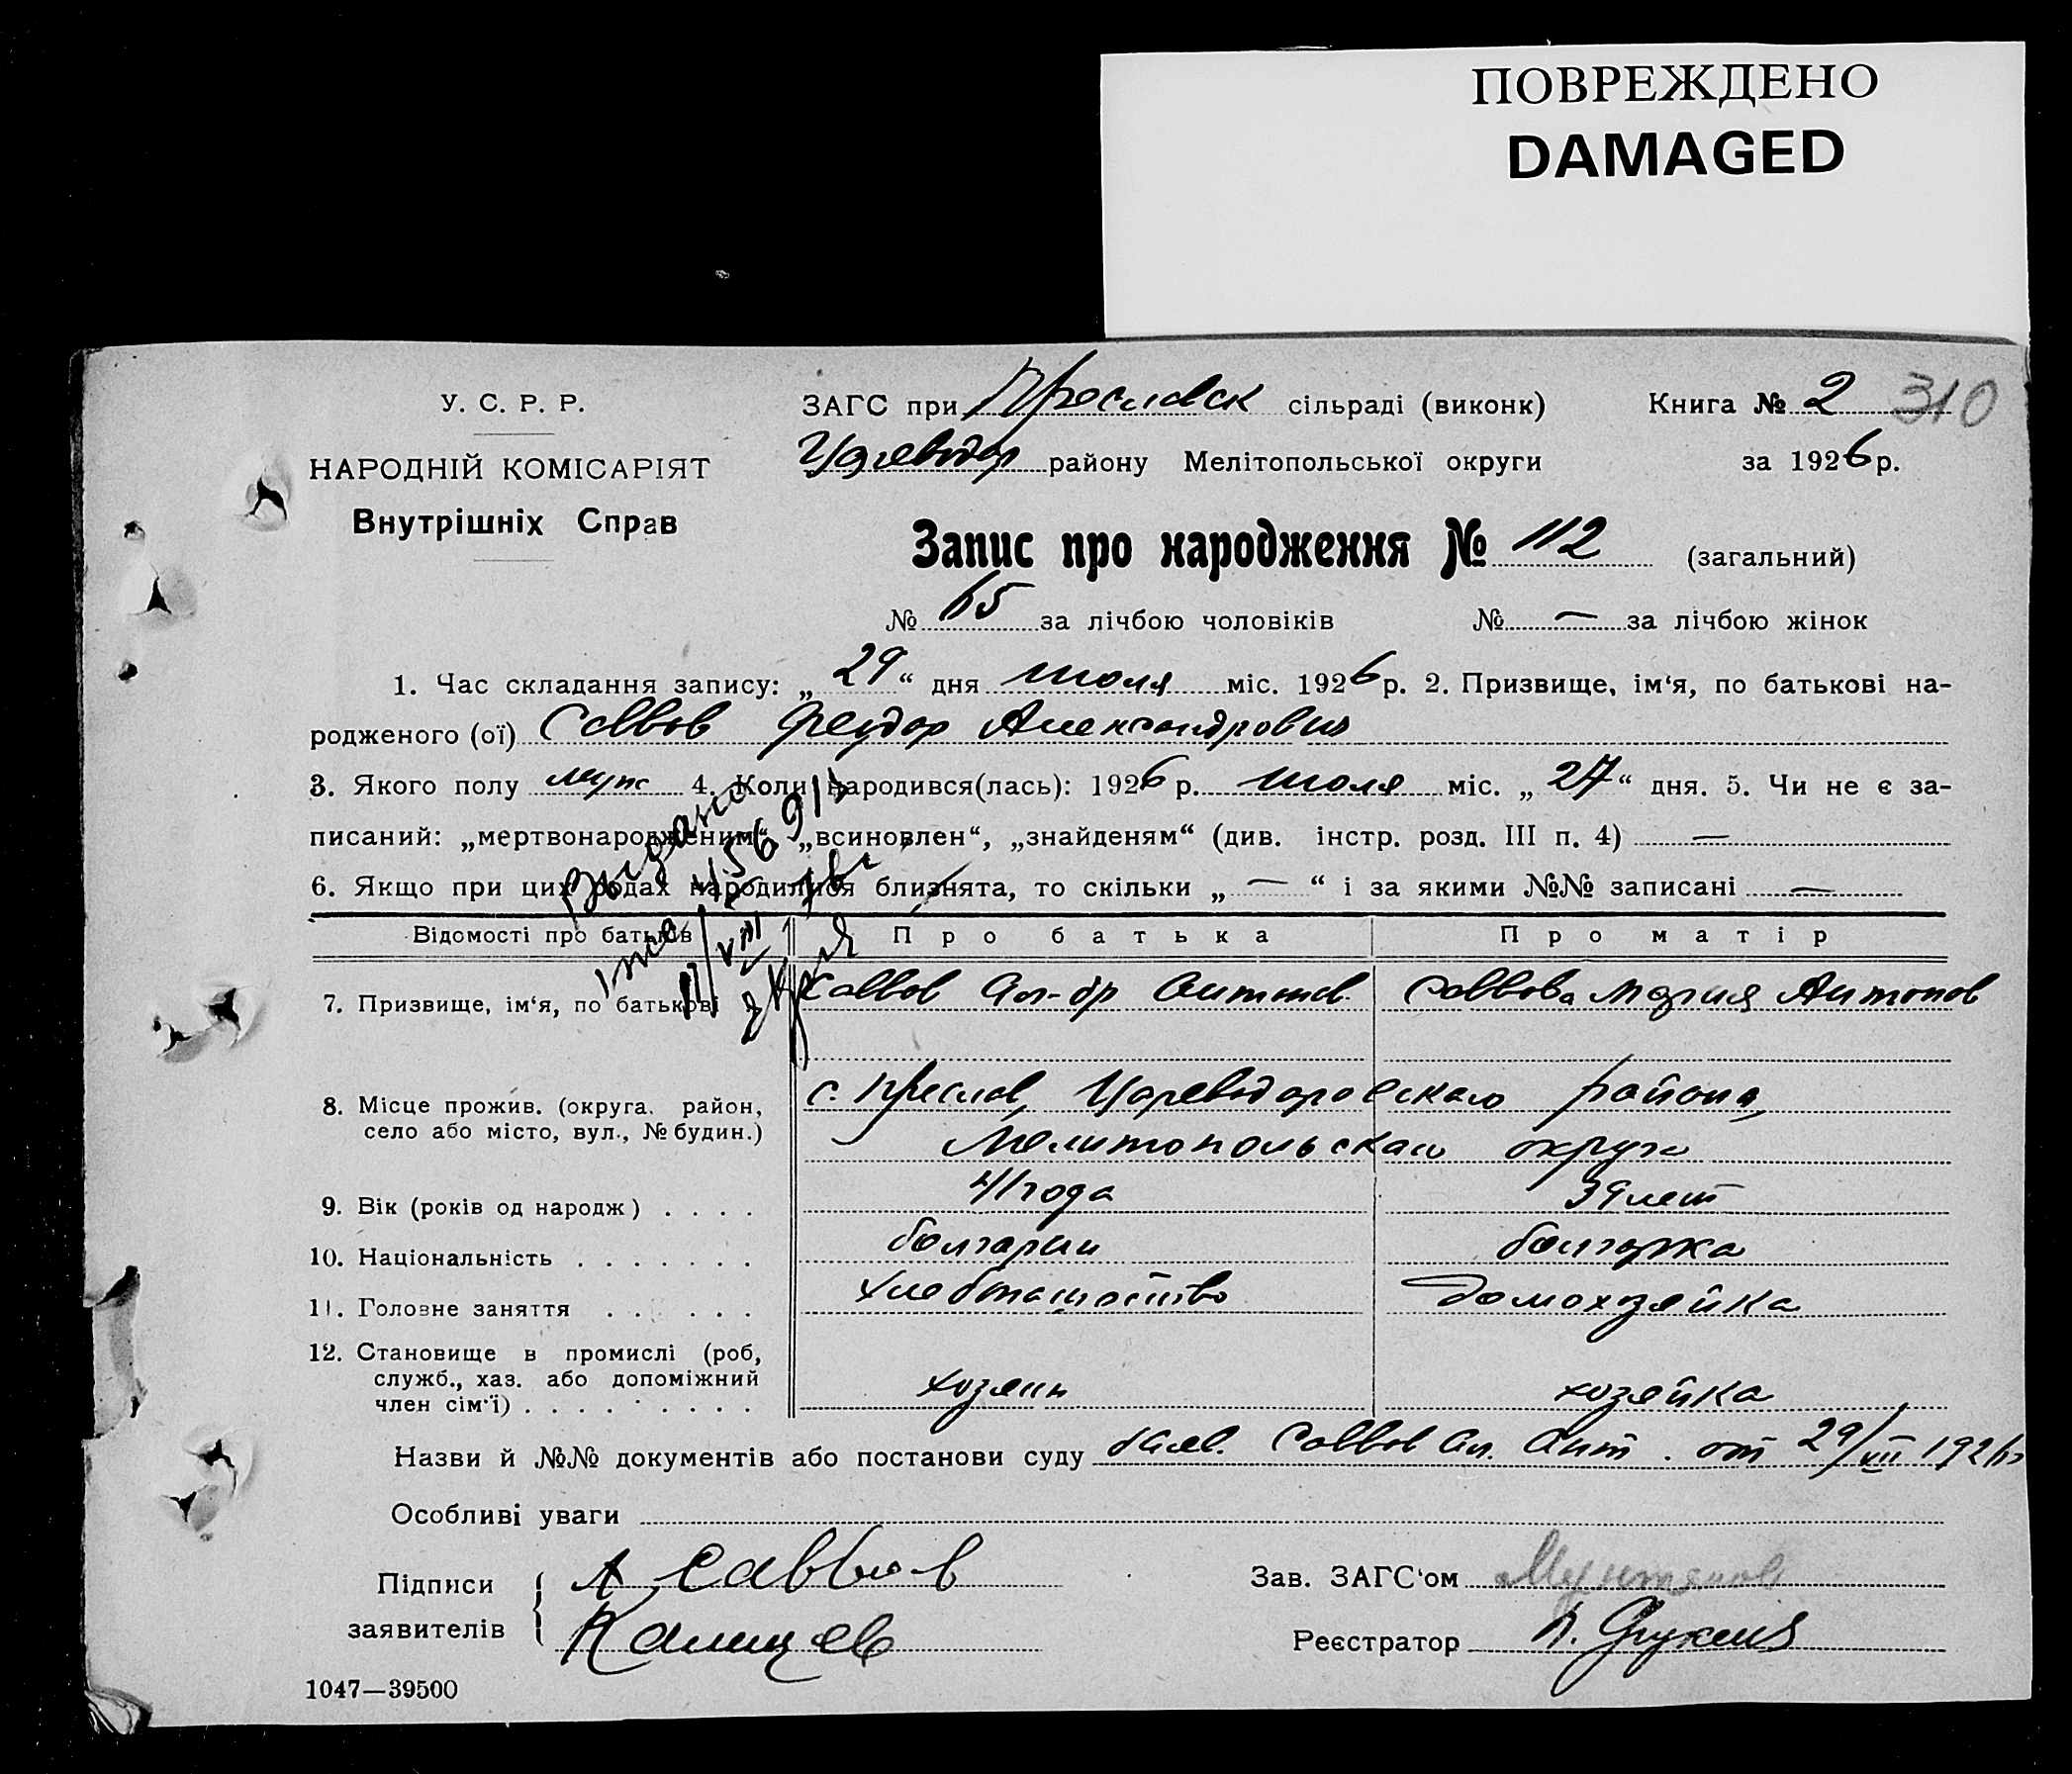 ПОВРЕЖДЕНО
DAMAGED
У. С. Р. Р.
НАРОДНІЙ КОМІСАРІЯТ
Внутрішніх Справ
ЗАГС при Преславск сільраді (виконк)
Книга № 2 310
Цареводар району Мелітопольської округи
за 1926 р.
Запис про народження № 112 (загальний)
№ 65 за лічбою чоловіків № — за лічбою жінок
1. Час складання запису: „ 29 “ дня июля міс. 1926 р. 2. Призвище, ім‘я, по батькові на-
родженого (ої) Саввов Феудор Александрович
3. Якого полу муж 4. Коли народився(лась): 1926 р. июля міс. „ 27 “ дня. 5. Чи не є за-
писаний: „мертвонародженим“, „всиновлен“, „знайденям“ (див. інстр. розд. III п. 4) —
6. Якщо при цих родах народилися близнята, то скільки „ — “ і за якими №№ записані —
Выдано
Відомості про батьків Про батька Про матір
7. Призвище, ім‘я, по батькові Саввов Ал-др Антонов. Саввова Мария Антонов
8. Місце прожив. (округа, район, село або місто, вул., № будин.) с. Преслав, Цареводаровского района,
Мелитопольскаго округа
9. Вік (років од народж) . . . . 41 года 39 лет
10. Національність . . . . . . . болгарин болгарка
11. Головне заняття . . . . . . хлебопашество домохозяйка
12. Становище в промислі (роб,
служб., хаз. або допоміжний
член сім‘ї) . . . . . . . . . хозяин хозяйка
Назви й №№ документів або постанови суду заяв. Саввов Ал. Ант. от 29/VII 1926 г
Особливі уваги
Підписи заявителів А Саввов
Зав. ЗАГС‘ом
Реєстратор
1047—39500